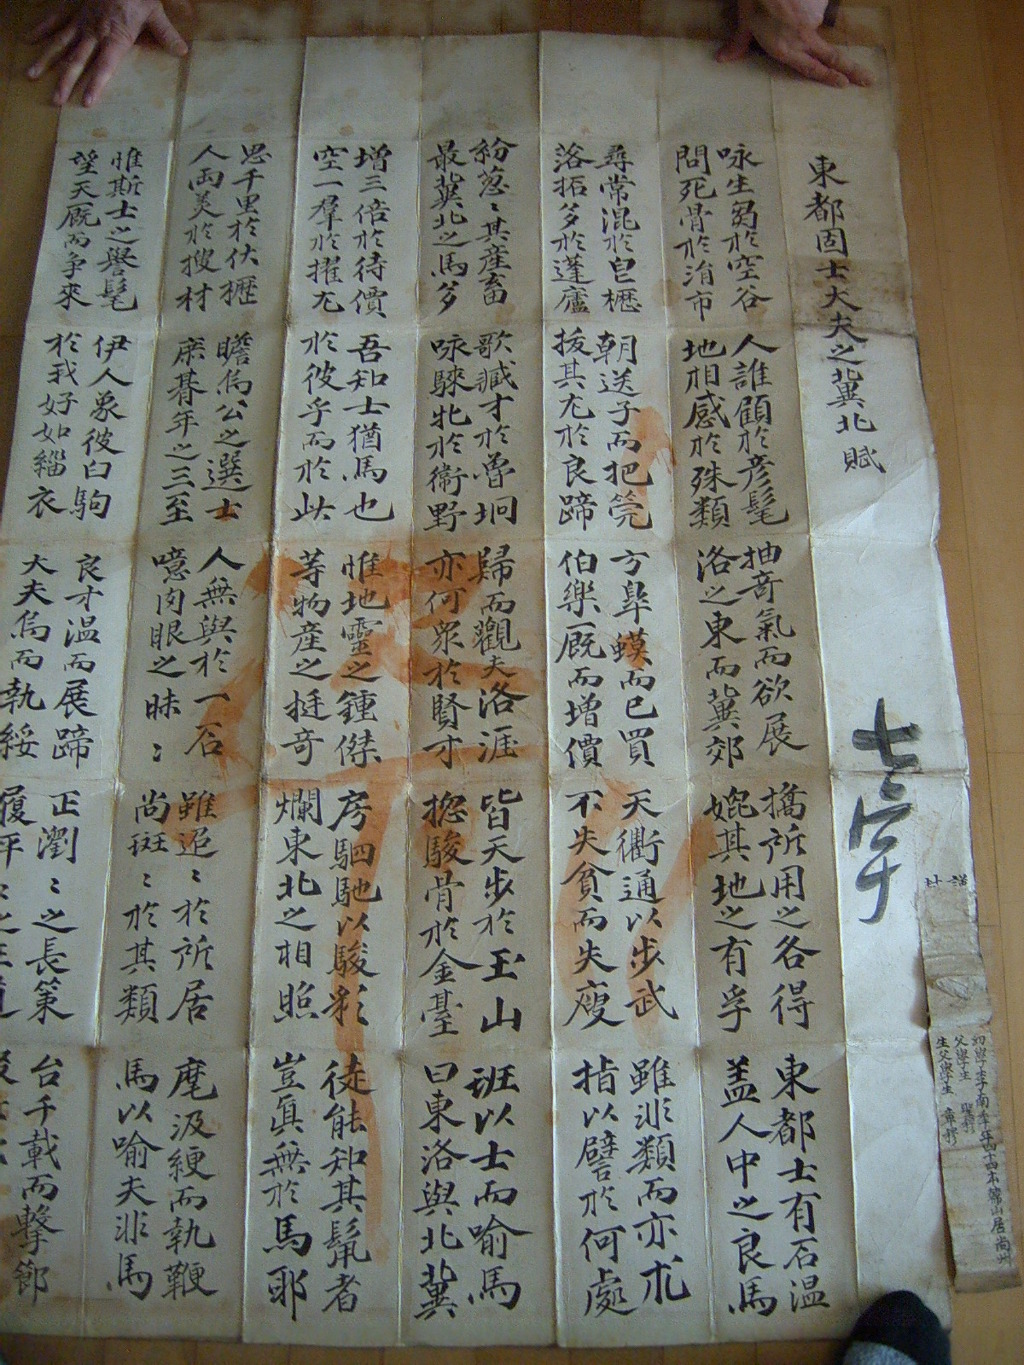 東都固士大夫之冀北賦
七
咏生芻於空谷 人誰顧於彦髦 抽奇氣而欲展 擣所用之各得 東都士有石温
問死骨於涓市 地相感於殊類 洛之東而冀郊 媲其地之有孚 盖人中之良馬
尋常混於皀櫪 朝送子而把筦 方臯蟆而已買 天衢通以步武 雖非類而亦朮
落拓多於蓬廬 拔其尤於良蹄 伯樂一厩而增價 不失貧而失瘦 指以譬於何處
紛葱〻其産畜 歌臧才於魯坰 歸而觀夫洛涯 皆天步於玉山 班以士而喻馬
最冀北之馬多 咏騋牝於衛野 亦何衆於賢才 揔駿骨於金臺 曰東洛與北冀
增三倍於待價 吾知士猶馬也 惟地靈之鍾傑 房駟馳以駿彩 徒能知其者
空一羣於擢尤 於彼乎而於此 等物産之挺奇 爛東北之相照 豈眞無於馬耶
思千里於伏櫪 瞻烏公之選士 人無與於一石 雖迢〻於所居 麾汲綆而執鞭
人両美於搜材 庶朞年之三至 噫肉眼之昧〻 尚斑〻於其類 馬以喻夫非馬
惟斯士之譽髦 伊人象彼白駒 良才温而展蹄 正瀏〻之長策 台千載而擊節
望天厩而争來 於我好如緇衣 大夫烏而執綏 履平
幼學李 南 年四十 本 山居尚州
父學生
生父學生